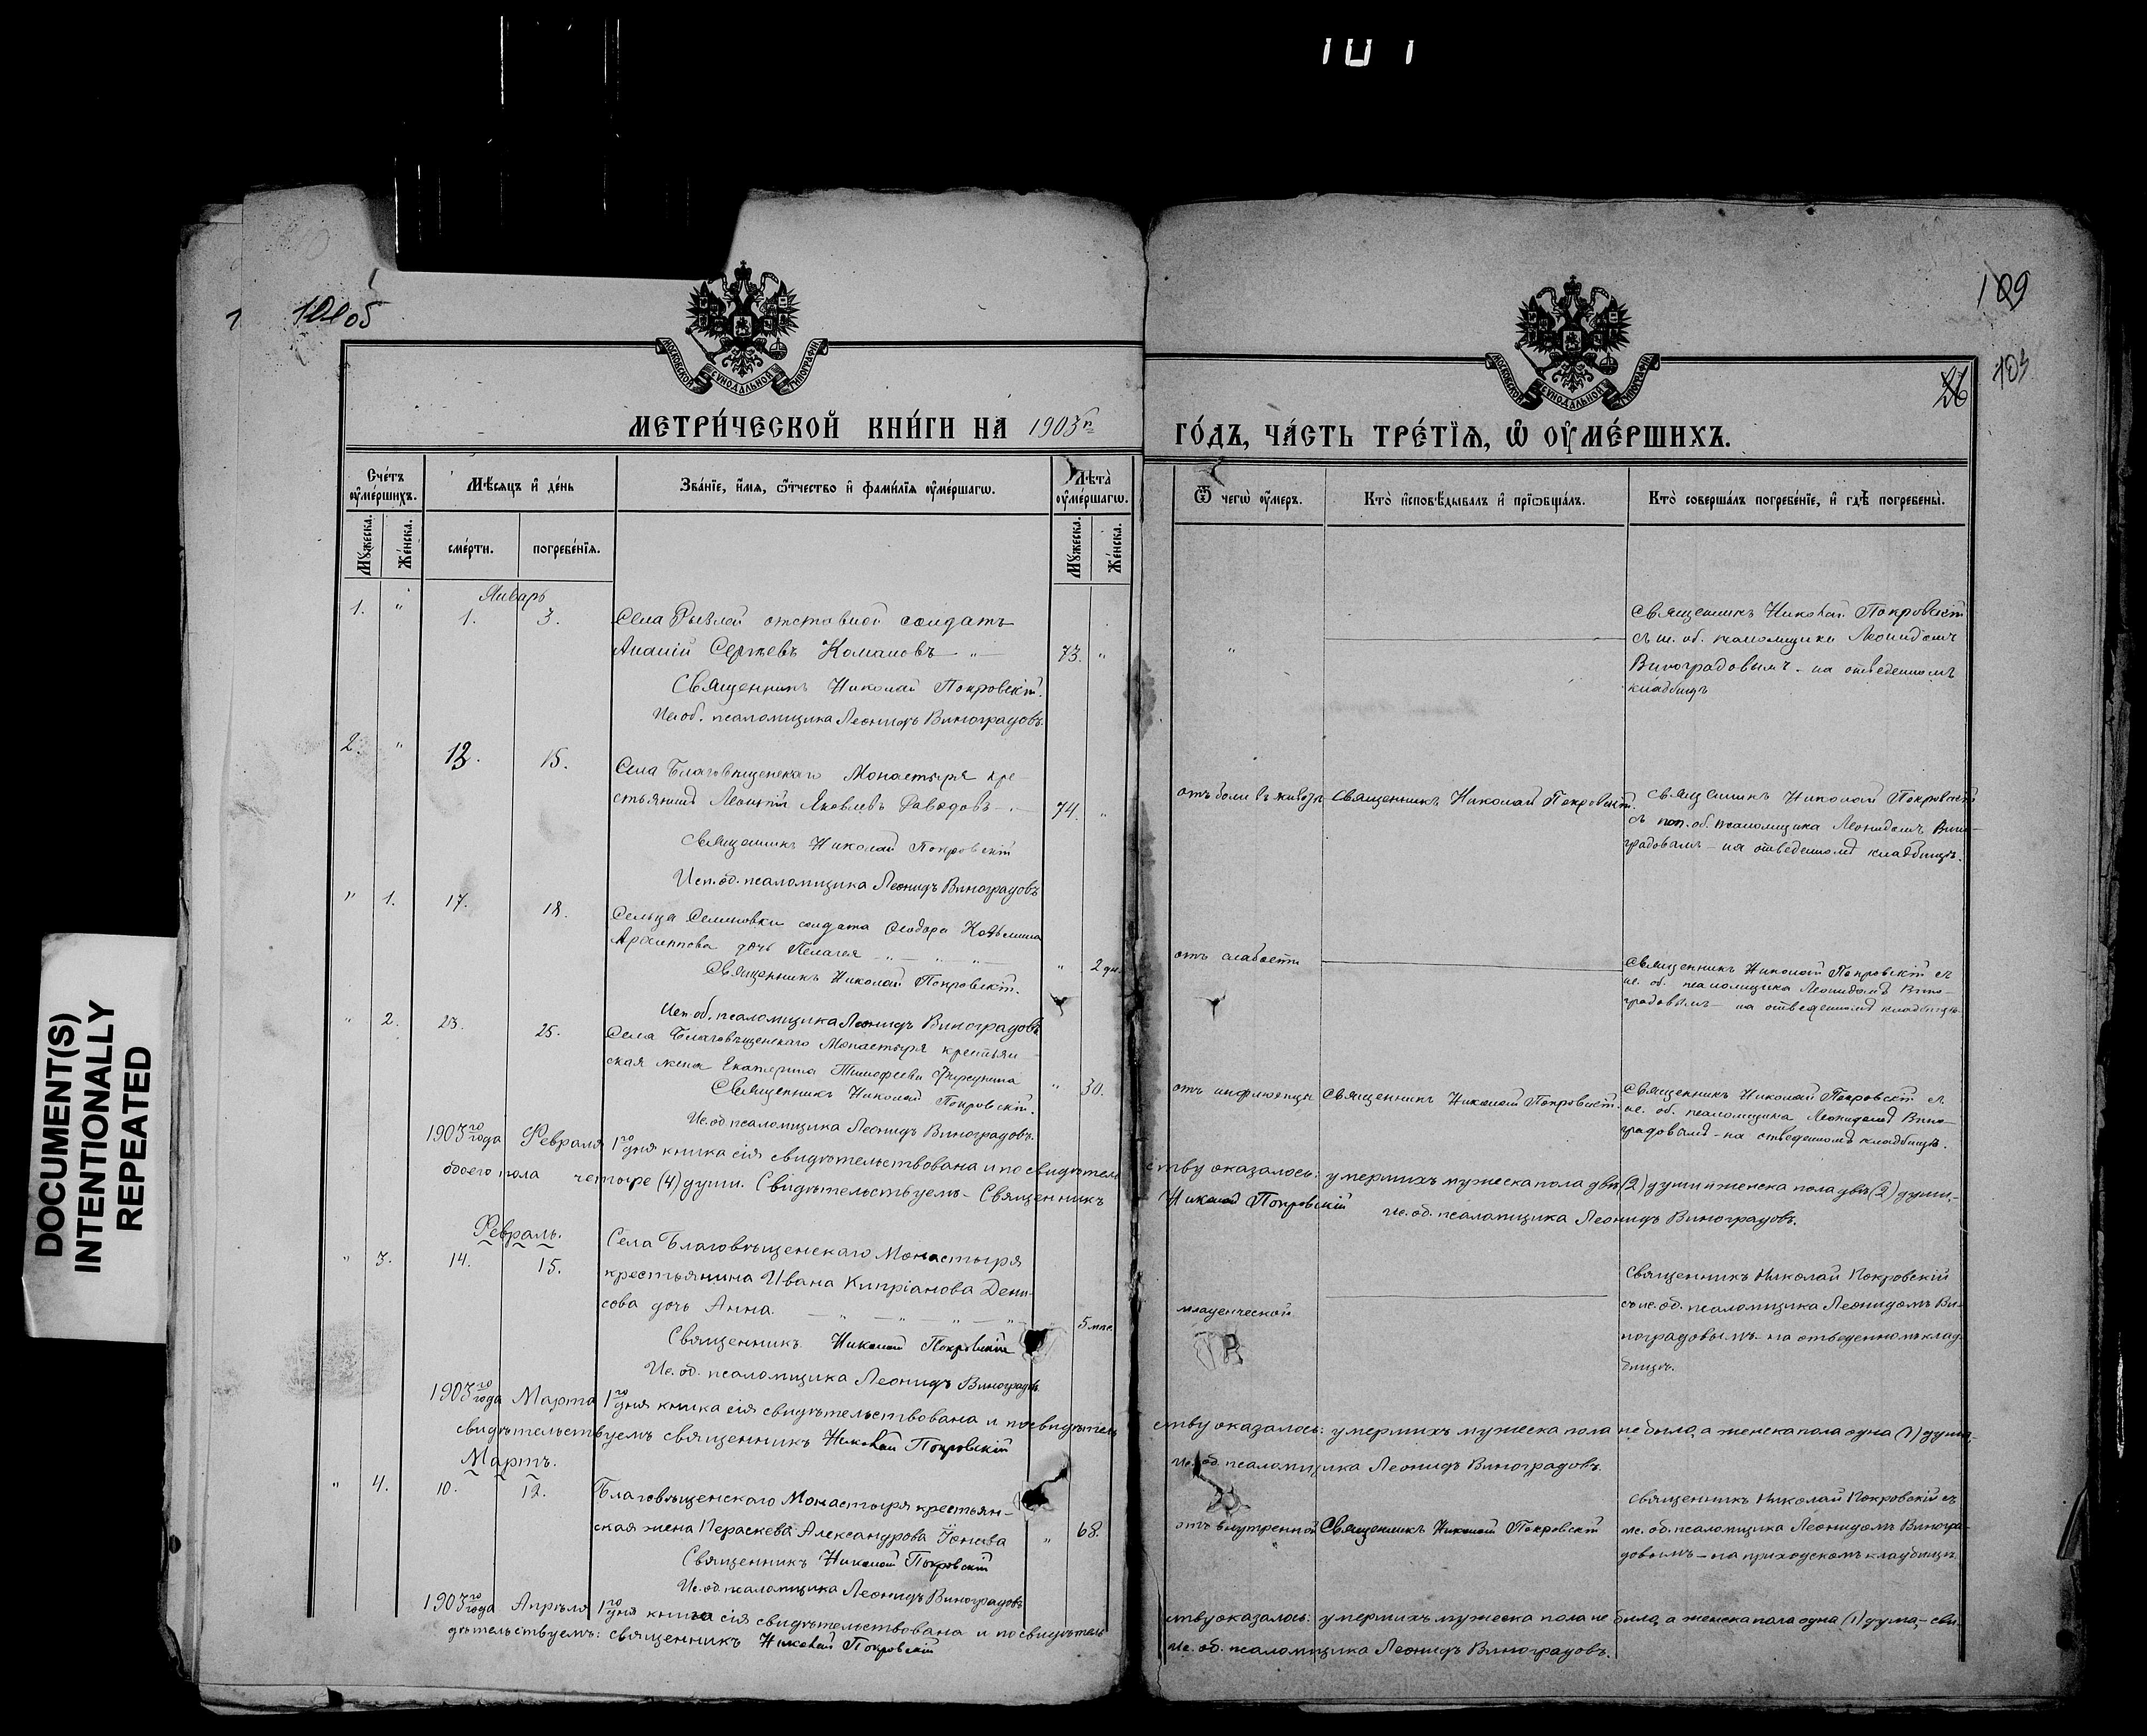 101
101об
109
103
26
МОСКОВСКОЙ СѴНОДАЛЬНОЙ ТИПОГРАФІИ
МОСКОВСКОЙ СѴНОДАЛЬНОЙ ТИПОГРАФІИ
МЕТРИ́ЧЕСКОЙ КНИ́ГИ НА 1903й
ГО́ДЪ, ЧА́СТЬ ТРЕ́ТІѦ, Ѡ ОУМЕ́РШИХЪ.
Сче́тъ оуме́ршихъ.
Мꙋжеска.
Же́нска.
Мѣсяцъ и де́нь
сме́рти.
погребе́нїѧ.
Зва́нїе, и́мѧ, ѻ́тчество и фами́лїѧ оуме́ршагѡ.
Лѣта̀ оуме́ршагѡ.
Мꙋжеска.
Же́нска.
Ѿ чегѡ̀ оу́меръ.
Кто̀ исповѣдывалъ и прїѡбща́лъ.
Кто̀ соверша́лъ погребе́нїе, и гдѣ̀ погребены̀.
Январь
1. " 1. 3.
Села отставной солдатъ
Ананій Сергѣевъ Комаровъ — " — 73. "
Священникъ Николай Покровскій.
Ис. об. псаломщика Леонидъ Виноградовъ.
"
Священникъ Николай Покровскій
съ ис. об. псаломщика Леонидомъ
Виноградовымъ - на отведенномъ
кладбищѣ
2. " 13. 15.
Села Благовѣщенскаго Монастыря кре-
стьянинъ Леонтій Яковлевъ 74. "
Священникъ Николай Покровскій
Исп. об. псаломщика Леонидъ Виноградовъ
отъ боли въ животѣ Священникъ Николай Покровскій.
Священникъ Николай Покровскій
съ исп. об. псаломщика Леонидомъ Вино-
градовымъ - на отведенномъ кладбищѣ.
" 1. 17. 18.
Сельца Семеновки солдата Ѳеодора Козьмина
Архиппова дочь Пелагея — " — " — " 2 дн.
Священникъ Николай Покровскій.
Исп. об. псаломщика Леонидъ Виноградовъ
отъ слабости
Священникъ Николай Покровскій съ
ис. об. псаломщика Леонидомъ Вино-
градовымъ - на отведенномъ кладбищѣ.
" 2. 23. 25.
Села Благовѣщенскаго Монастыря крестьян-
ская жена Екатерина Тимофеева " 30.
Священникъ Николай Покровскій.
Ис. об. псаломщика Леонидъ Виноградовъ.
отъ инфлюенцы Священникъ Николай Покровскій.
Священникъ Николай Покровскій съ
ис. об. псаломщика Леонидомъ Вино-
градовымъ - на отведенномъ кладбищѣ.
1903го года Февраля 1го дня книга сія свидѣтельствована и по свидѣтель
ству оказалось: умершихъ мужеска пола двѣ (2) души и женска пола двѣ (2) души, -
обоего пола четыре (4) души. Свидѣтельствуемъ - Священникъ
Николай Покровскій ис. об. псаломщика Леонидъ Виноградовъ.
Февраль.
" 3. 14. 15.
Села Благовѣщенскаго Монастыря
крестьянина Ивана Кипріанова Дени-
сова дочь Анна. — " — " — " — 5 мѣс.
Священникъ Николай Покровскій
Ис. об. псаломщика Леонидъ Виноградовъ
младенческой
Священникъ Николай Покровскій
съ ис. об. псаломщика Леонидомъ Ви-
ноградовымъ - на отведенномъ клад-
бищѣ.
1903го года Марта 1го дня книга сія свидѣтельствована и по свидѣтель
ству оказалось: умершихъ мужеска пола не было, а женска пола одна (1) душа, -
свидѣтельствуемъ священникъ Николай Покровскій
Ис. об. псаломщика Леонидъ Виноградовъ.
Мартъ.
" 4. 10. 12.
Благовѣщенскаго Монастыря крестьян-
ская жена Параскева Александрова " 68.
Священникъ Николай Покровскій
Ис. об. псаломщика Леонидъ Виноградовъ
отъ внутренной Священникъ Николай Покровскій
Священникъ Николай Покровскій съ
ис. об. псаломщика Леонидомъ Виногра-
довымъ - на приходскомъ кладбищѣ.
1903го года Апрѣля 1го дня книга сія свидѣтельствована и по свидѣтель
ству оказалось: умершихъ мужеска пола не было, а женска пола одна (1) душа, - сви-
дѣтельствуемъ: священникъ Николай Покровскій
Ис. об. псаломщика Леонидъ Виноградовъ.
DOCUMENT(S)
INTENTIONALLY
REPEATED